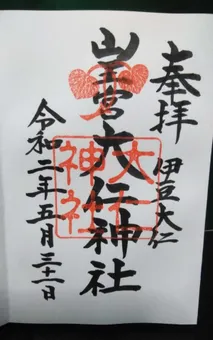 奉拝 伊豆大仁
山宮大仁神社
大仁神社
令和二年五月三十一日